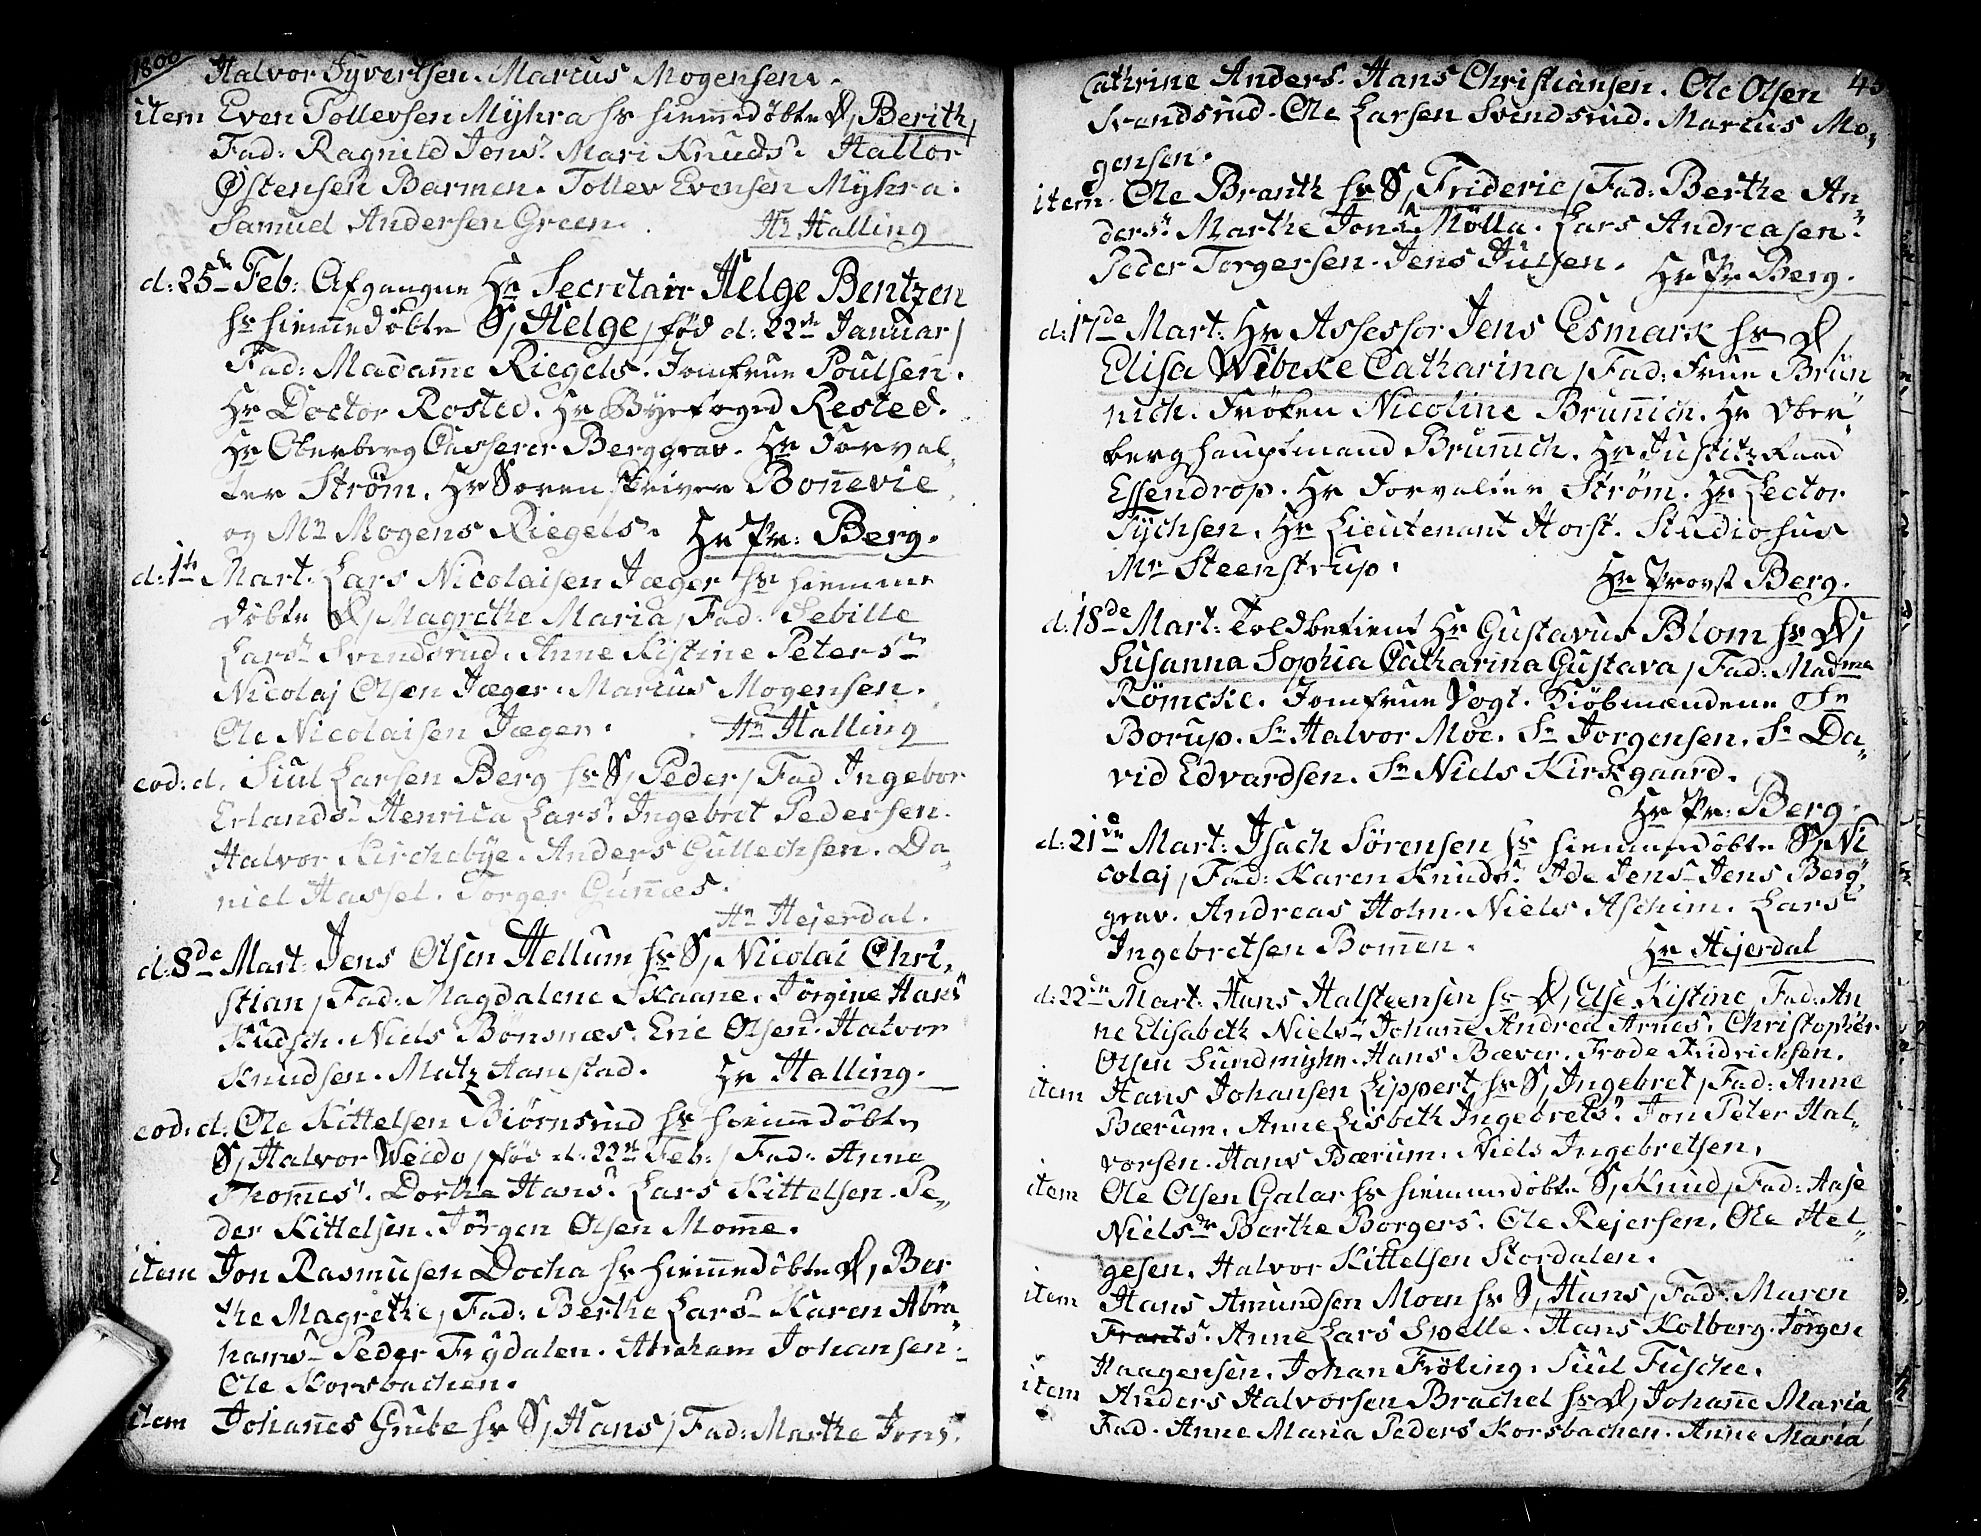 1800
Halvor Iyvertsen. Marcus Mogensen.
item Even Tollevsen Myhra hs hiemedøbte D, Berith,
Fad: Ragnild Jens. Mari Knuds. Hallor
Østensen Barmen. Tollev Evensen Myhra.
Samuel Andersen Green. Hr Halling
d: 25de Feb: Afgangne Hr Secretair Helge Bentzen
hs hiemedøbte S, Helge, fød d: 22de Januar/
Fad: Madame Riegels. Jomfrue Poulsen.
Hr Doctor Rosted. Hr Byefoged Rested.
Hr Oberberg Casserer Berggrav. Hr Forval-
ter Strøm. Hr Sorenskriver Bonevie
og Mr Mogens Riegels. Hr Pr: Berg.
d: 1te Mart. Lars Nicolaisen Jæger hs hiemme
døbte D, Magrethe Maria, Fad: Sebille
Lars Svendsrud. Anne Kistine Peters
Nicolaj Olsen Jæger. Marcus Mogensen.
Ole Nicolaisen Jæger. Hr Halling
eod: d. Siul Larsen Berg hs S, Peder, Fad Ingebor
Erlands Henrica Lars. Ingebret Pedersen.
Halvor Kirchebye. Anders Gullechsen. Da-
niel Hassel. Torger Gunnes.
Hr Hejerdal.
d: 8de Mart: Jens Olsen Hellum hs S, Nicolai Chri-
stian, Fad: Magdalene Skaane. Jørgine Hans
Kudsch. Niels Bønsnæs. Eric Olsen. Halvor
Knudsen. Matz Hamstad. Hr Halling.
eod: d: Ole Kittelsen Biørnsrud hs hiemedøbte
S, Halvor Weido, fød d: 22de Feb:/ Fad: Anne
Thomes. Dorthe Hans. Lars Kittelsen. Pe-
der Kittelsen. Jørgen Olsen Momme.
item Jon Rasmusen Docha hs hiemedøbte D, Ber
the Magrethe, Fad: Berthe Lars Karen Abra-
hams Peder Frydalen. Abraham Johansen.
Ole Korsbachen.
item Johannes Grube hs S, Hans, Fad: Marthe Jens.
45
Cathrine Anders. Hans Christiansen. Ole Olsen
Svendsrud. Ole Larsen Svendsrud. Marcus Mo-
gensen.
item Ole Branth hs S, Frideric, Fad: Berthe An-
ders. Marthe Jens Mølla. Lars Andreasen.
Peder Torgersen. Jens Julsen. Hr Pr Berg.
d: 17de Mart: Hr Assessor Jens Esmark hs D,
Elisa Wibeke Catharina, Fad: Frue Brün
nich. Frøken Nicoline Brunnich. Hr Ober-
berghauptmand Brunnich. Hr Justitz Raad
Essendrop. Hr Forvalter Strøm. Hr Lector
Tychsen. Hr Lieutenant Horst. Studiosus
Mr Steenstrup. Hr Provst Berg.
d: 18de Mart: Toldbetient Hr Gustavus Blom hs D,
Susanna Sophia Catharina Gustava, Fad: Madme
Rømcke. Jomfrue Vogt. Kiøbmændene Sr
Borup. Sr Halvor Moe. Sr Jorgensen. Sr Da-
vid Edvardsen. Sr Niels Kirkgaard.
Hr Pr: Berg.
d: 21de Mart: Isach Sørensen hs hiemmedøbte S, Ni
colaj, Fad: Karen Knuds. Ide Jens Jens Berg-
grav. Andreas Holm. Niels Aschim. Lars
Ingebretsen Bomen. Hr Hejerdal
d: 22de Mart: Hans Halsteensen hs D, Else Kistine, Fad: An
ne Elisabeth Niels. Johanne Andrea Arnes. Christopher
Olsen Sundmyhr. Hans Bæver. Frode Fridrichsen.
item Hans Johansen Lippert hs S, Ingebret, Fad: Anne
Bærum. Anne Lisbeth Ingebrets. Jon Peter Hal-
vorsen. Hans Bærum. Niels Ingebretsen.
item Ole Olsen Galar hs hiemmedøbte S, Knud, Fad: Aase
Niels Berthe Borgers. Ole Rejersen. Ole Hel-
gesen. Halvor Kittelsen Stordalen.
item Hans Amundsen Moen hs S, Hans, Fad: Maren
Frants. Anne Lars Spelle. Hans Kolberg. Jørgen
Haagensen. Johan Frøling. Siul Fusche.
item Anders Halvorsen Brachel hs D, Johanne Maria
Fad. Anne Maria Peders Korsbachen. Anne Maria